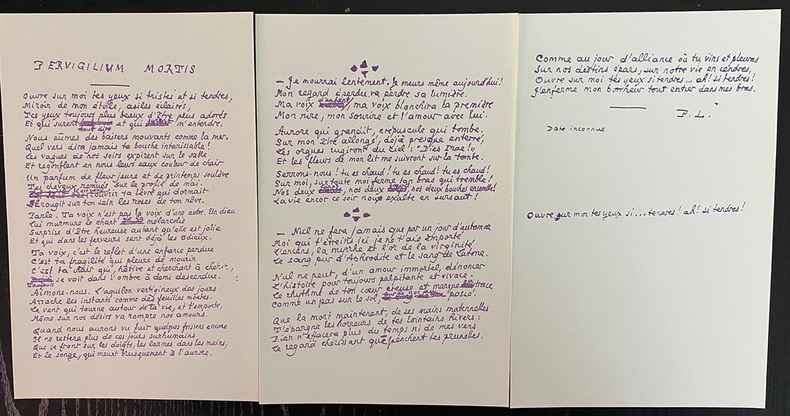 PERVIGILIUM MORTIS
Ouvre sur moi tes yeux si tristes et si tendres,
Miroir de mon étoile, asiles éclairés,
Tes yeux toujours plus beaux d'être plus adorés
Et qui surent tout dire et qui m'entendre.
Nous eûmes des baisers mouvants comme la mer.
Quel vers dira jamais ta bouche intarissable!
Les vagues de nos soirs expirent sur le sable
Et regonflent en nous leurs eaux couleur de chair
Un parfum de fleur jeune et de printemps soulève
Tes cheveux remués sur le profil de mai.
ouvrir ta lèvre qui dormait
Et coucuit sur ton sein les roses de ton rêve.
Parle. Ta voix n'est pas la voix d'une autre. Un dieu
Lui murmure le chant mélancolie
Surprise d'être heureuse autant qu'elle est jolie
Et qui dans les ferveurs sent déjà les adieux.
Ta voix, c'est le reflet d'une enfance perdue
C'est ta fragilité qui pleure de mourir
C'est ta chair qui, hâtive et cherchant à chérir,
Toujours se voit dans l'ombre à demi descendue.
Aimons-nous. L'aquilon vertigineux des jours
Arrache les instants comme des feuilles mortes.
Le vent qui tourne autour de ta vie, et t'emporte,
Même sur nos désirs va rompre nos amours.
Quand nous aurons vu fuir quelques frissons encore
Il ne restera plus de ces joies surhumains
Que ce front sur les doigts, les larmes dans les mains,
Et le songe, qui meurt brusquement à l'aurore.
— Je mourrai lentement. Je meurs même aujourd'hui!
Mon regard éperdu va perdre sa lumière.
Ma voix d'enfant, ma voix blanchira la première
Mon rire, mon sourire et l'amour avec lui.
Aurore qui grandit, crépuscule qui tombe.
Sur mon être allongé, déjà presque enterré,
Les orgues rugiront du ciel: "Dies Irae!"
Et les fleurs de mon lit me suivront sur la tombe.
Serrons-nous! tu es chaud! tu es chaud! tu es chaud!
Sur moi, sur toute moi ferme ton bras qui tremble!
Nos deux nos deux nos deux bouches ensemble!
La vie encor ce soir nous exalte en sursaut!
— Nul ne fera jamais que par un jour d'automne
Moi qui t'étreins ici je ne t'aie emporté
L'encens, la myrrhe et l'or de la virginité
Le sang pur d'Aphrodite et le sang de Latone.
Nul ne peut, d'un amour immortel, dénoncer
L'histoire pour toujours palpitante et vivace.
Le rythme de ton cœur creuse et marque sa trace
Comme un pas sur le sol passé.
Que la mort maintenant, de ses mains maternelles
T'épargne les horreurs de tes lointains hivers:
Rien n'effacera plus du temps ni de mes vers
Le regard choisissant que penchent tes prunelles.
Comme au jour d'alliance où tu vins et pleuras
Sur nos destins épars, sur notre vie en cendres,
Ouvre sur moi tes yeux si tendres... ah! si tendres!
J'enferme mon bonheur tout entier dans mes bras.
P. L.
Date inconnue
Ouvre sur moi tes yeux si... tendres! ah! si tendres!